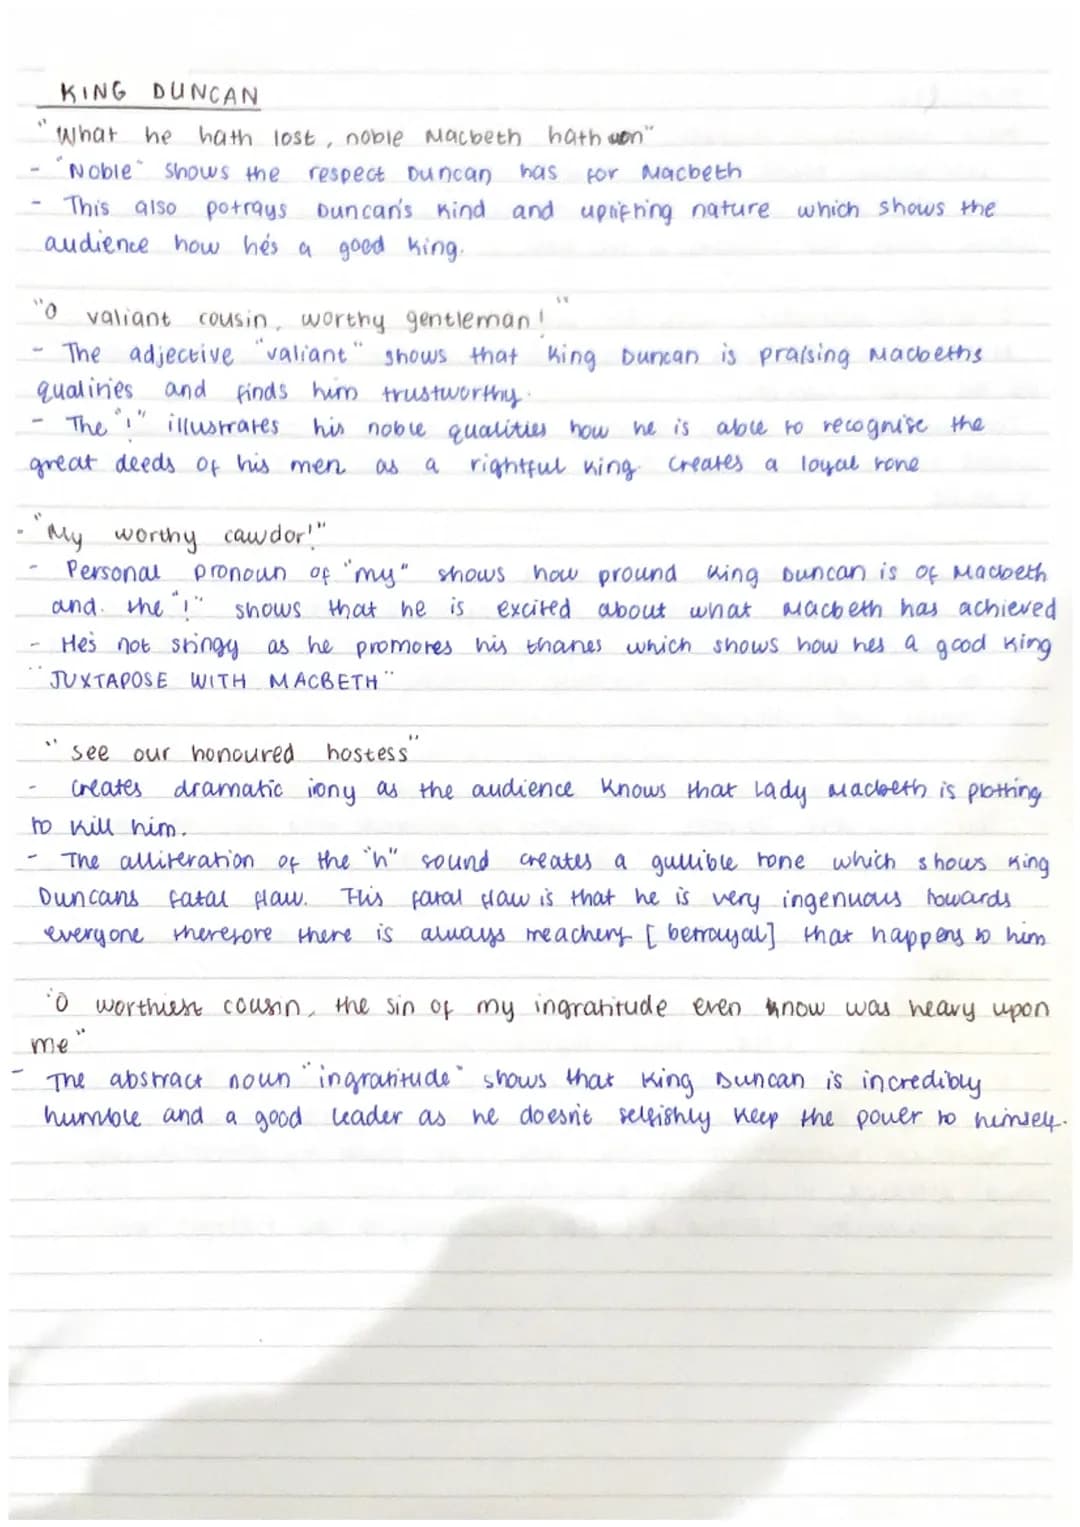 KING DUNCAN
"What he hath lost, noble Macbeth hath won"
- "Noble" shows the respect Duncan has for Macbeth
- This also potrays Duncan's kind and uplifting nature which shows the
audience how he's a good king.
"O valiant cousin, worthy gentleman!"
- The adjective "valiant" shows that King Duncan is praising Macbeths
qualities and finds him trustworthy.
- The "!" illustrates his noble qualities how he is able to recognise the
great deeds of his men as a rightful king. Creates a loyal tone
- "My worthy cawdor!"
- Personal pronoun of "my" shows how pround King Duncan is of Macbeth
and. the "!" shows that he is excited about what Macbeth has achieved
- He's not stingy as he promotes his thanes which shows how hes a good King
"JUXTAPOSE WITH MACBETH"
"see our honoured hostess"
- creates dramatic irony as the audience knows that Lady Macbeth is plotting
to kill him.
- The alliteration of the "h" sound creates a gullible tone which shows King
Duncans fatal flaw. This fatal flaw is that he is very ingenuous towards
everyone therefore there is always treachery [betrayal] that happens to him
"O worthiest cousin, the sin of my ingratitude even know was heavy upon
me"
- The abstract noun "ingratitude" shows that King Duncan is incredibly
humble and a good leader as he doesn't selfishly keep the power to himself.